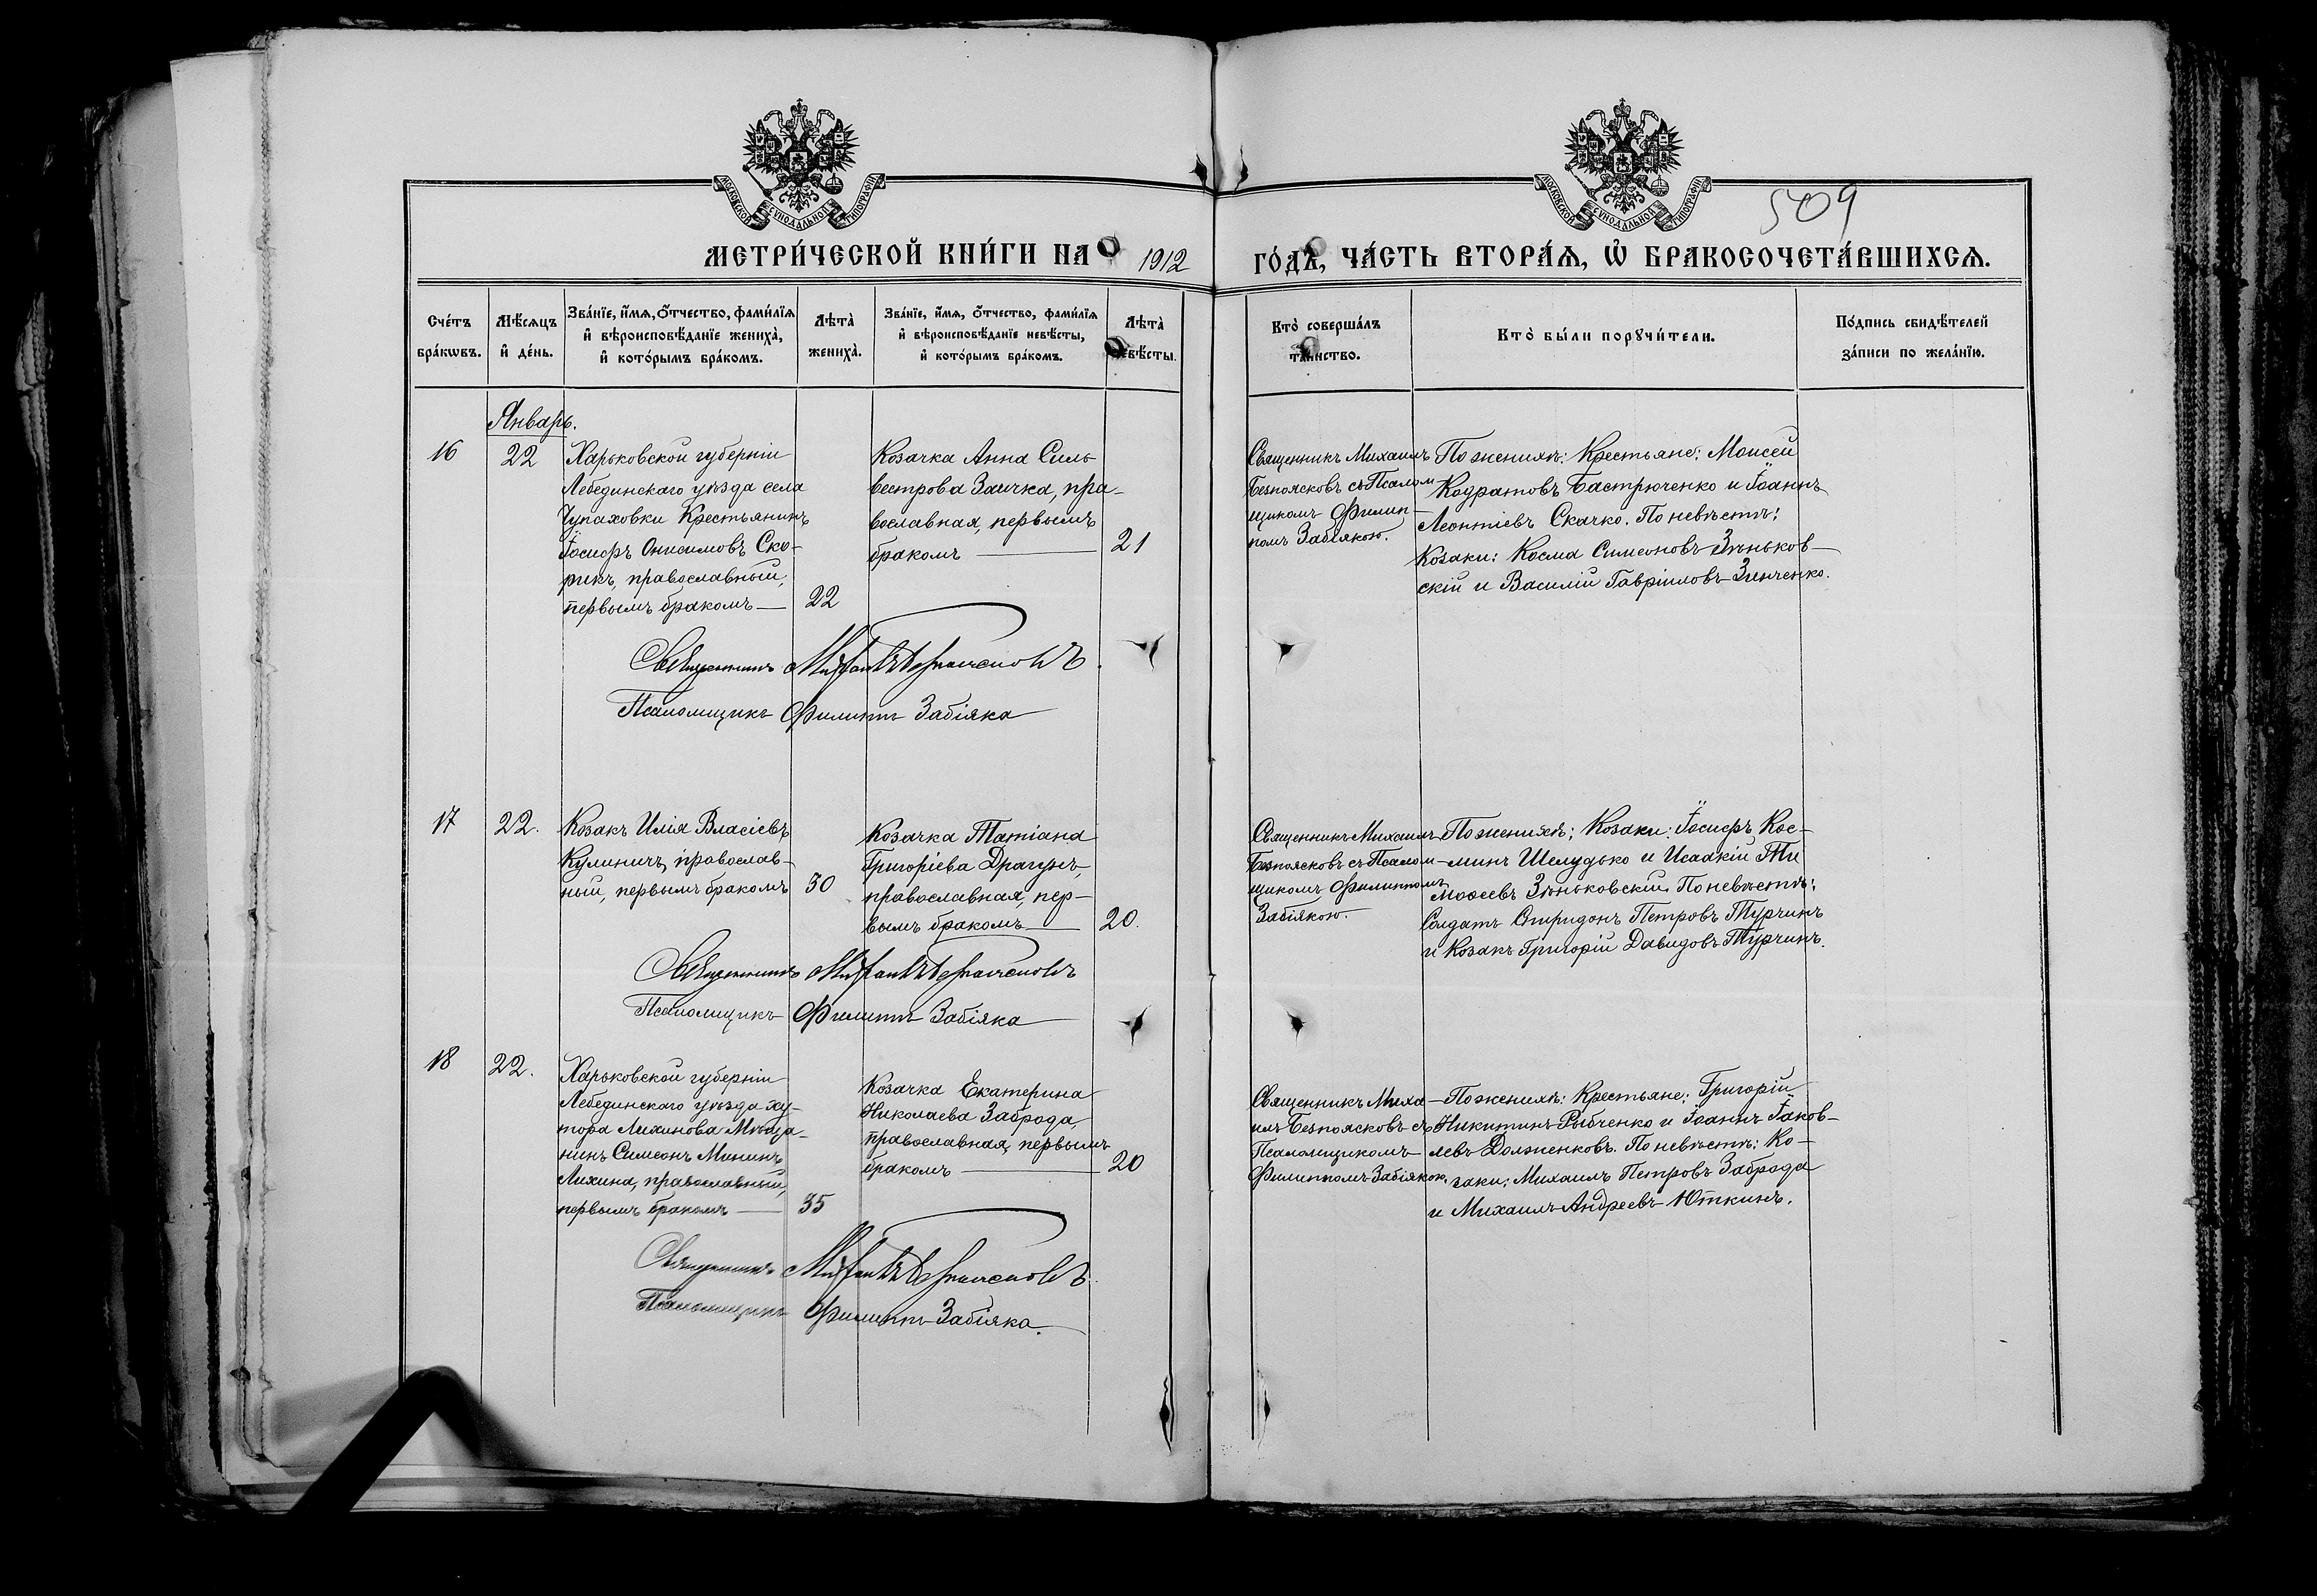 МОСКОВСКОЙ СѴНОДАЛЬНОЙ ТИПОГРАФІИ
МОСКОВСКОЙ СѴНОДАЛЬНОЙ ТИПОГРАФІИ
509
МЕТРИ́ЧЕСКОЙ КНИ́ГИ НА 1912 ГО́ДЪ, ЧА́СТЬ ВТОРА́Ѧ, Ѡ҆ БРАКОСОЧЕТА́ВШИХСѦ.
Сче́тъ бра́кѡвъ.
Мѣ́сѧцъ и҆ де́нь.
Зва́нїе, и҆́мѧ, ѻ҆́тчество, фами́лїѧ и҆ вѣроисповѣ́данїе жениха̀, и҆ кото́рымъ бра́комъ.
Лѣта̀ жениха̀.
Зва́нїе, и҆́мѧ, ѻ҆́тчество, фами́лїѧ и҆ вѣроисповѣ́данїе невѣ́сты, и҆ кото́рымъ бра́комъ.
Лѣта̀ невѣ́сты.
Кто̀ соверша́лъ та́инство.
Кто̀ бы́ли порꙋчи́тели.
По́дпись свидѣ́телей за́писи по жела́нїю.
Январь.
16
22
Харьковской губерніи
Лебединскаго уѣзда села
Чупаховки Крестьянинъ
Іосифъ Онисимовъ Ско-
рикъ, православный,
первымъ бракомъ —
22
Козачка Анна Силь
вестрова Заичка, пра-
вославная, первымъ
бракомъ —
21
Священникъ Михаилъ
Безпоясковъ съ Псалом
щикомъ Филип-
помъ Забіякою.
По женихѣ: Крестьяне: Моисей
Кодратовъ Бастрюченко и Іоаннъ
Леонтіевъ Скачко. По невѣстѣ:
Козаки: Косма Симеоновъ Зѣньков-
скій и Василій Гавріиловъ Зинченко.
Священникъ Михаилъ Безпоясковъ.
Псаломщикъ Филиппъ Забіяка
17
22.
Козакъ Илія Власіевъ
Кулиничъ, православ-
ный, первымъ бракомъ
30
Козачка Татіана
Григоріева Драгунъ,
православная, пер-
вымъ бракомъ —
20.
Священникъ Михаилъ
Безпоясковъ съ Псалом-
щикомъ Филиппомъ
Забіякою.
По женихѣ: Козаки: Іосифъ Кос-
минъ Шелудько и Исаакій Ти
моѳеевъ Зѣньковскій. По невѣстѣ:
Солдатъ Спиридонъ Петровъ Турчинъ
и Козакъ Григорій Давидовъ Турчинъ.
Священникъ Михаилъ Безпоясковъ
Псаломщикъ Филиппъ Забіяка
18
22.
Харьковской губерніи
Лебединскаго уѣзда ху-
тора Лихинова Мѣща-
нинъ Симеонъ Мининъ
Лихина, православный,
первымъ бракомъ —
35
Козачка Екатерина
Николаева Заброда,
православная, первымъ
бракомъ —
20
Священникъ Миха-
илъ Безпоясковъ съ
Псаломщикомъ
Филиппомъ Забіякою.
По женихѣ: Крестьяне: Григорій
Никитинъ Рыбченко и Іоаннъ Іаков-
левъ Долженковъ. По невѣстѣ: Ко-
заки: Михаилъ Петровъ Заброда
и Михаилъ Андреевъ Юткинъ.
Священникъ Михаилъ Безпоясковъ.
Псаломщикъ Филиппъ Забіяка.